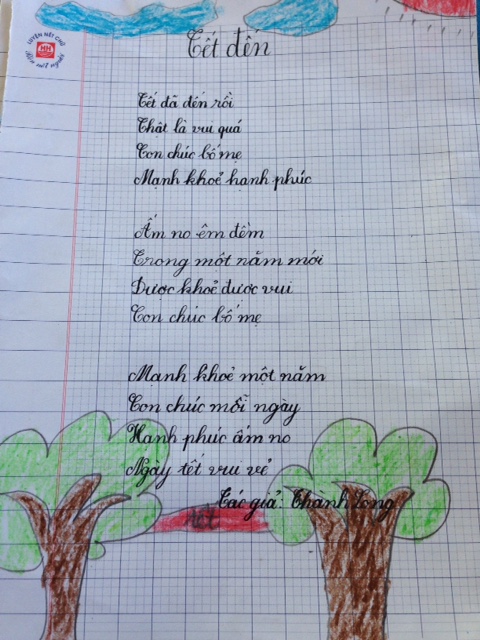 LUYỆN NÉT CHỮ
HH
Rèn nết người
Tết đến
Tết đã đến rồi
Thật là vui quá
Con chúc bố mẹ
Mạnh khoẻ hạnh phúc
Ấm no êm đềm
Trong một năm mới
Được khoẻ được vui
Con chúc bố mẹ
Mạnh khoẻ một năm
Con chúc mỗi ngày
Hạnh phúc ấm no
Ngày tết vui vẻ
Tác giả: Thanh Long
tết